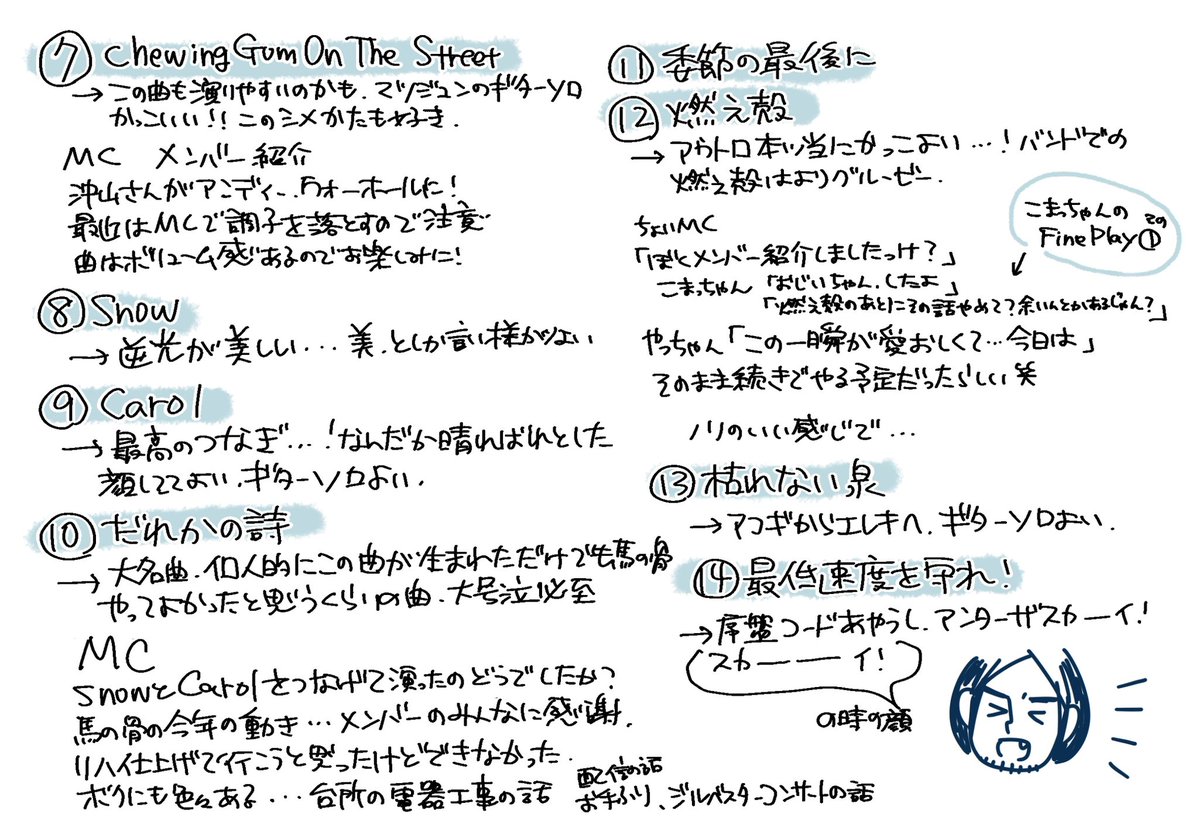 ⑦ Chewing Gum On The Street
→ この曲も演りやすいのかも、マツジュンのギターソロ
かっこいい!!このシメかたも好き.
MC メンバー紹介
沖山さんがアンディー、ウォーホールに!
最近はMCで調子を落とすので注意
曲はボリューム感あるのでお楽しみに!
⑧ Snow
→ 逆光が美しい...美、としか言い様がない
⑨ Carol
→ 最高のつなぎ...!なんだか晴ればれとした
顔しててよい、ギターソロよい.
⑩ だれかの詩
→ 大名曲、個人的にこの曲が生まれただけで馬の骨
やってよかったと思うくらいの曲、大号泣必至
MC
SnowとCarolをつなげて演ったのどうでしたか?
馬の骨の今年の動き...メンバーのみんなに感謝.
リハイ仕上げで行こうと思ったけどできなかった.
ボクにも色々ある...台所の電器工事の話
配信の話
お手ふり、ジルベスターコンサートの話
⑪ 季節の最後に
⑫ 燃え殻
→ アウトロ本当にかっこよい...!バンドでの
燃え殻はよりグルーピー.
ちょいMC
「ぼくメンバー紹介しましたっけ?」
こまっちゃん「おじいちゃん、したよ」
「燃え殻のあとにその話やめて?余いんとかあるじゃん?」
こまっちゃんの
Fine Play その①
やっちゃん「この一瞬が愛おしくて...今日は」
そのまま続きでやる予定だったらしい笑
ノリのいい感じで...
⑬ 枯れない泉
→ アコギからエレキへ、ギターソロよい.
⑭ 最低速度を守れ!
→ 序盤コードあやうし、アンターザスカーイ!
スカーーーイ!
の時の顔